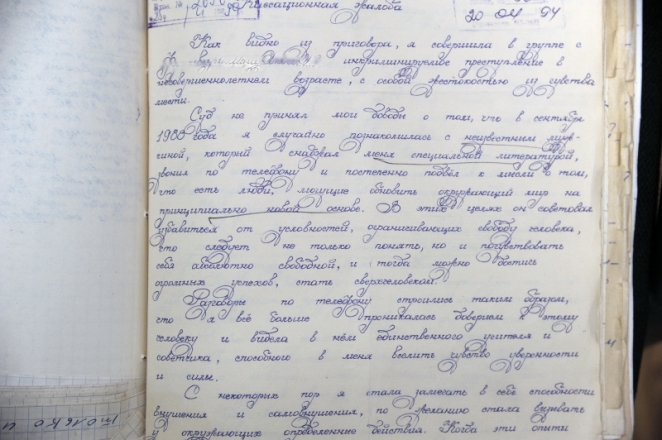 Кассационная жалоба
20 04 94
Как видно из приговора, я совершила в группе с
инкриминируемое преступление в
несовершеннолетнем возрасте, с особой жестокостью из чувства
мести.
Суд не принял мои доводы о том, что в сентябре
1988 года я случайно познакомилась с неизвестным муж-
чиной, который снабжал меня специальной литературой,
звонил по телефону и постепенно подвёл к мысли о том,
что есть люди, могущие обновить окружающий мир на
принципиально новой основе. В этих целях он советовал
избавиться от условностей, ограничивающих свободу человека,
что следует не только понять, но и почувствовать
себя абсолютно свободной, и тогда можно достичь
огромных успехов, стать сверхчеловеком.
Разговоры по телефону строились таким образом,
что я всё больше проникалась доверием к этому
человеку и видела в нём единственного учителя и
советчика, способного в меня вселить чувство уверенности
и силы.
С некоторых пор я стала замечать в себе способности
внушения и самовнушения, по желанию стала вызывать
у окружающих определенные действия. Когда эти опыты
только и